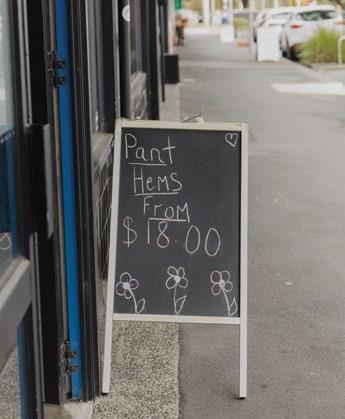 Pant
Hems
From
$18.00